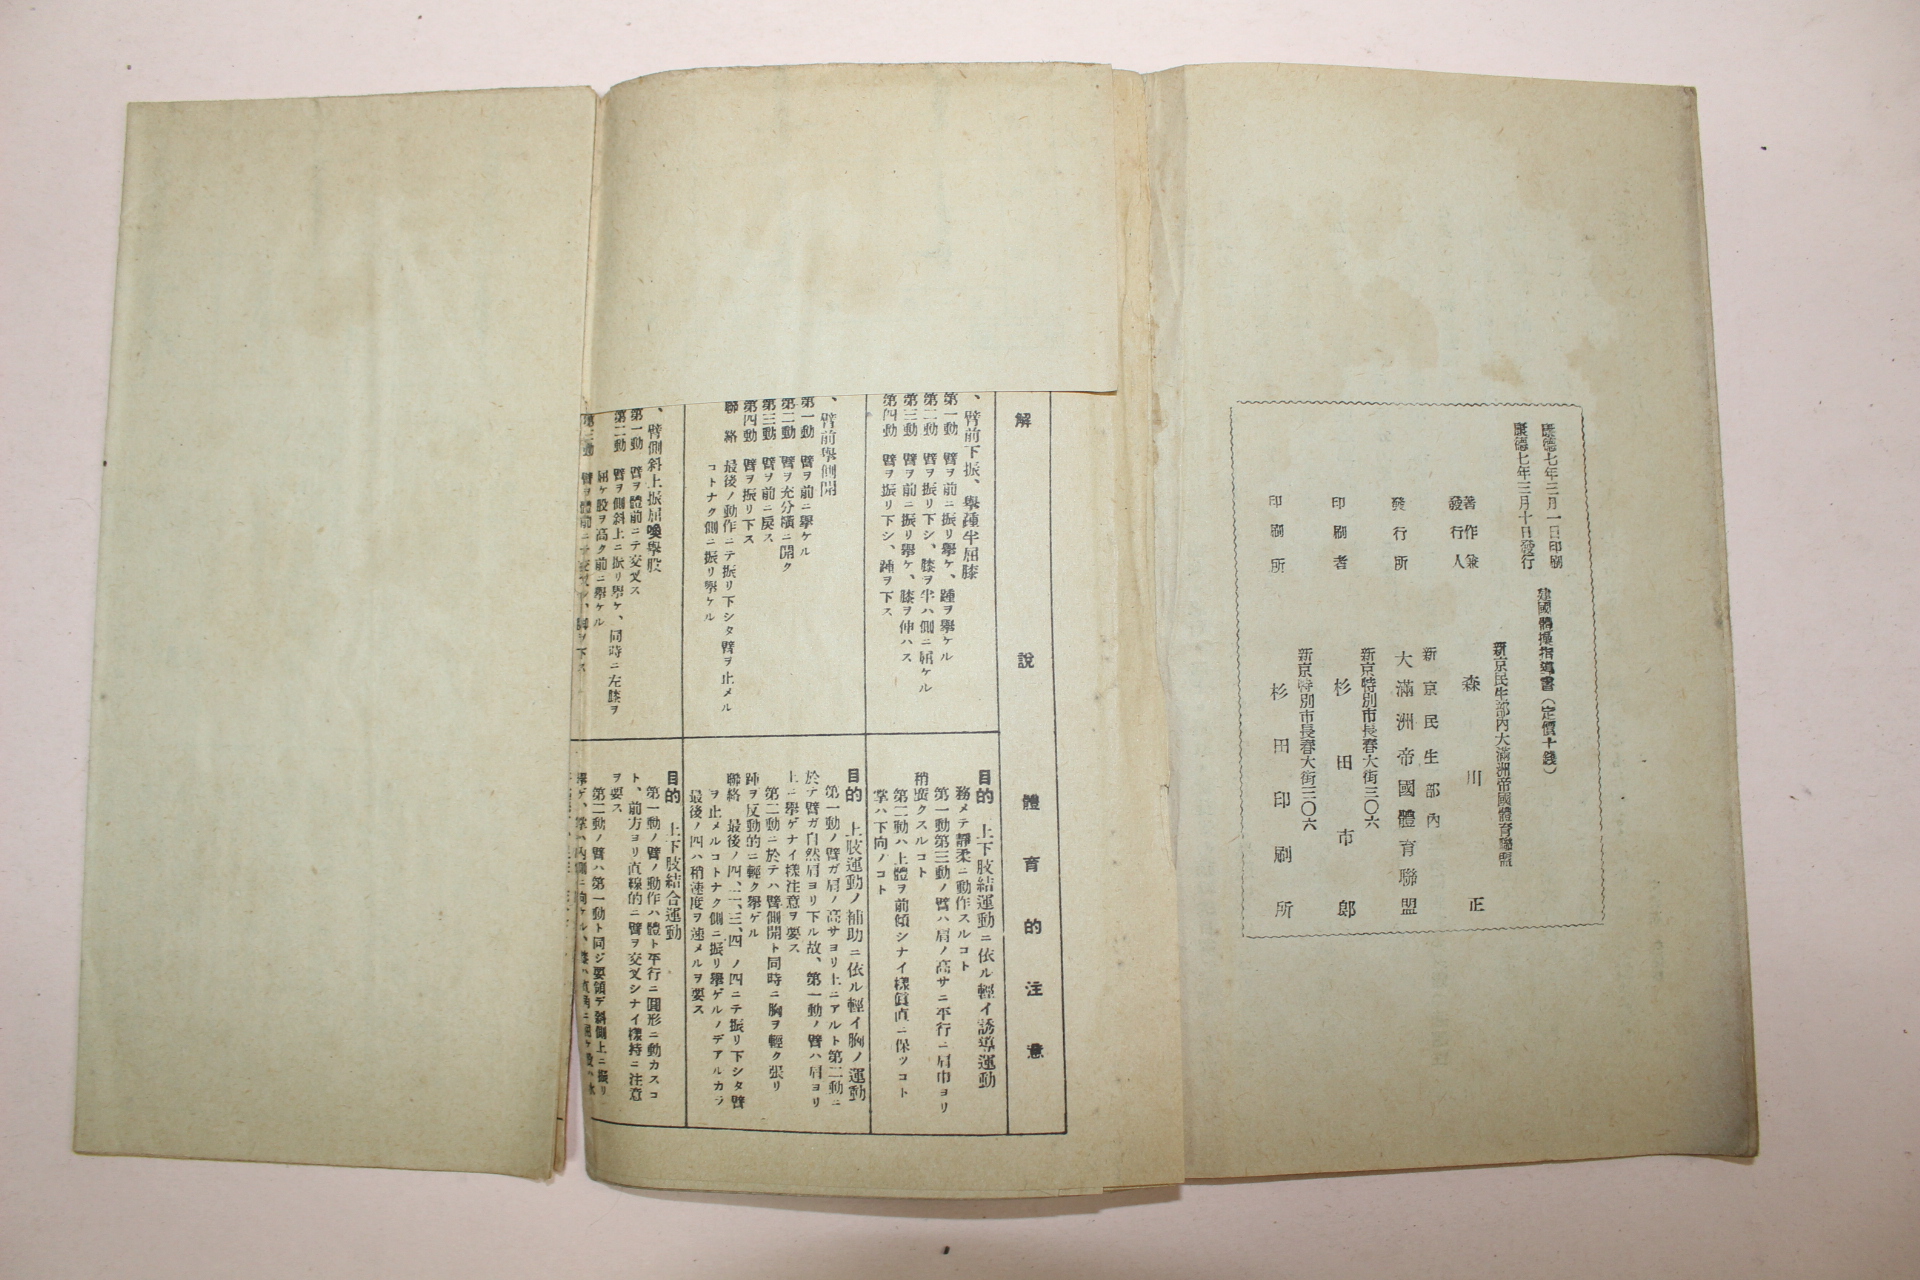 康德七年三月一日印刷
康德七年三月十日發行
建國體操指導書（定價十錢）
新京民生部內大滿洲帝國體育聯盟
著作兼
發行人
森川正
新京民生部內
發行所
大滿洲帝國體育聯盟
新京特別市長春大街三〇六
印刷者
杉田市郎
新京特別市長春大街三〇六
印刷所
杉田印刷所
解說
體育的注意
、臂前下振、擧踵半屈膝
第一動 臂ヲ前ニ振リ擧ケ、踵ヲ擧ケル
第二動 臂ヲ振リ下シ、膝ヲ半ハ側ニ屈ケル
第三動 臂ヲ前ニ振リ擧ケ、膝ヲ伸ハス
第四動 臂ヲ振リ下シ、踵ヲ下ス
目的 上下肢結運動ニ依ル輕イ誘導運動
務メテ靜柔ニ動作スルコト
第一動第三動ノ臂ハ肩ノ高サニ平行ニ肩巾ヨリ
稍廣クスルコト
第二動ハ上體ヲ前傾シナイ樣眞直ニ保ツコト
掌ハ下向ノコト
、臂前擧側開
第一動 臂ヲ前ニ擧ケル
第二動 臂ヲ充分橫ニ開ク
第三動 臂ヲ前ニ戾ス
第四動 臂ヲ振リ下ス
聯絡 最後ノ動作ニテ振リ下シタ臂ヲ止メル
コトナク側ニ振リ擧ケル
目的 上肢運動ノ補助ニ依ル輕イ胸ノ運動
第一動ノ臂ガ肩ノ高サヨリ上ニアルト第二動ニ
於テ臂ガ自然肩ヨリ下ル故、第一動ノ臂ハ肩ヨリ
上ニ擧ゲナイ樣注意ヲ要ス
第二動ニ於テハ臂側開ト同時ニ胸ヲ輕ク張リ
踵ヲ反動的ニ輕ク擧ゲル
聯絡 最後ノ四、二、三、四 ノ四ニテ振リ下シタ臂
ヲ止メルコトナク側ニ振リ擧ゲルノデアルカラ
最後ノ四ハ稍速度ヲ速メルヲ要ス
、臂側斜上振屈膝擧股
第一動 臂ヲ體前ニテ交叉ス
第二動 臂ヲ側斜上ニ振リ擧ケ、同時ニ左膝ヲ
屈ケ股ヲ高ク前ニ擧ケル
第三動 臂ヲ體前ニテ交叉シ、脚ヲ下ス
目的 上下肢結合運動
第一動ノ臂ノ動作ハ體ト平行ニ圓形ニ動カスコ
ト、前方ヨリ直線的ニ臂ヲ交叉シナイ樣特ニ注意
ヲ要ス
第二動ノ臂ハ第一動ト同ジ要領デ斜側上ニ振リ
擧ゲ、掌ハ內側ニ向ケル、膝ハ直角ニ屈ケ股ハ水